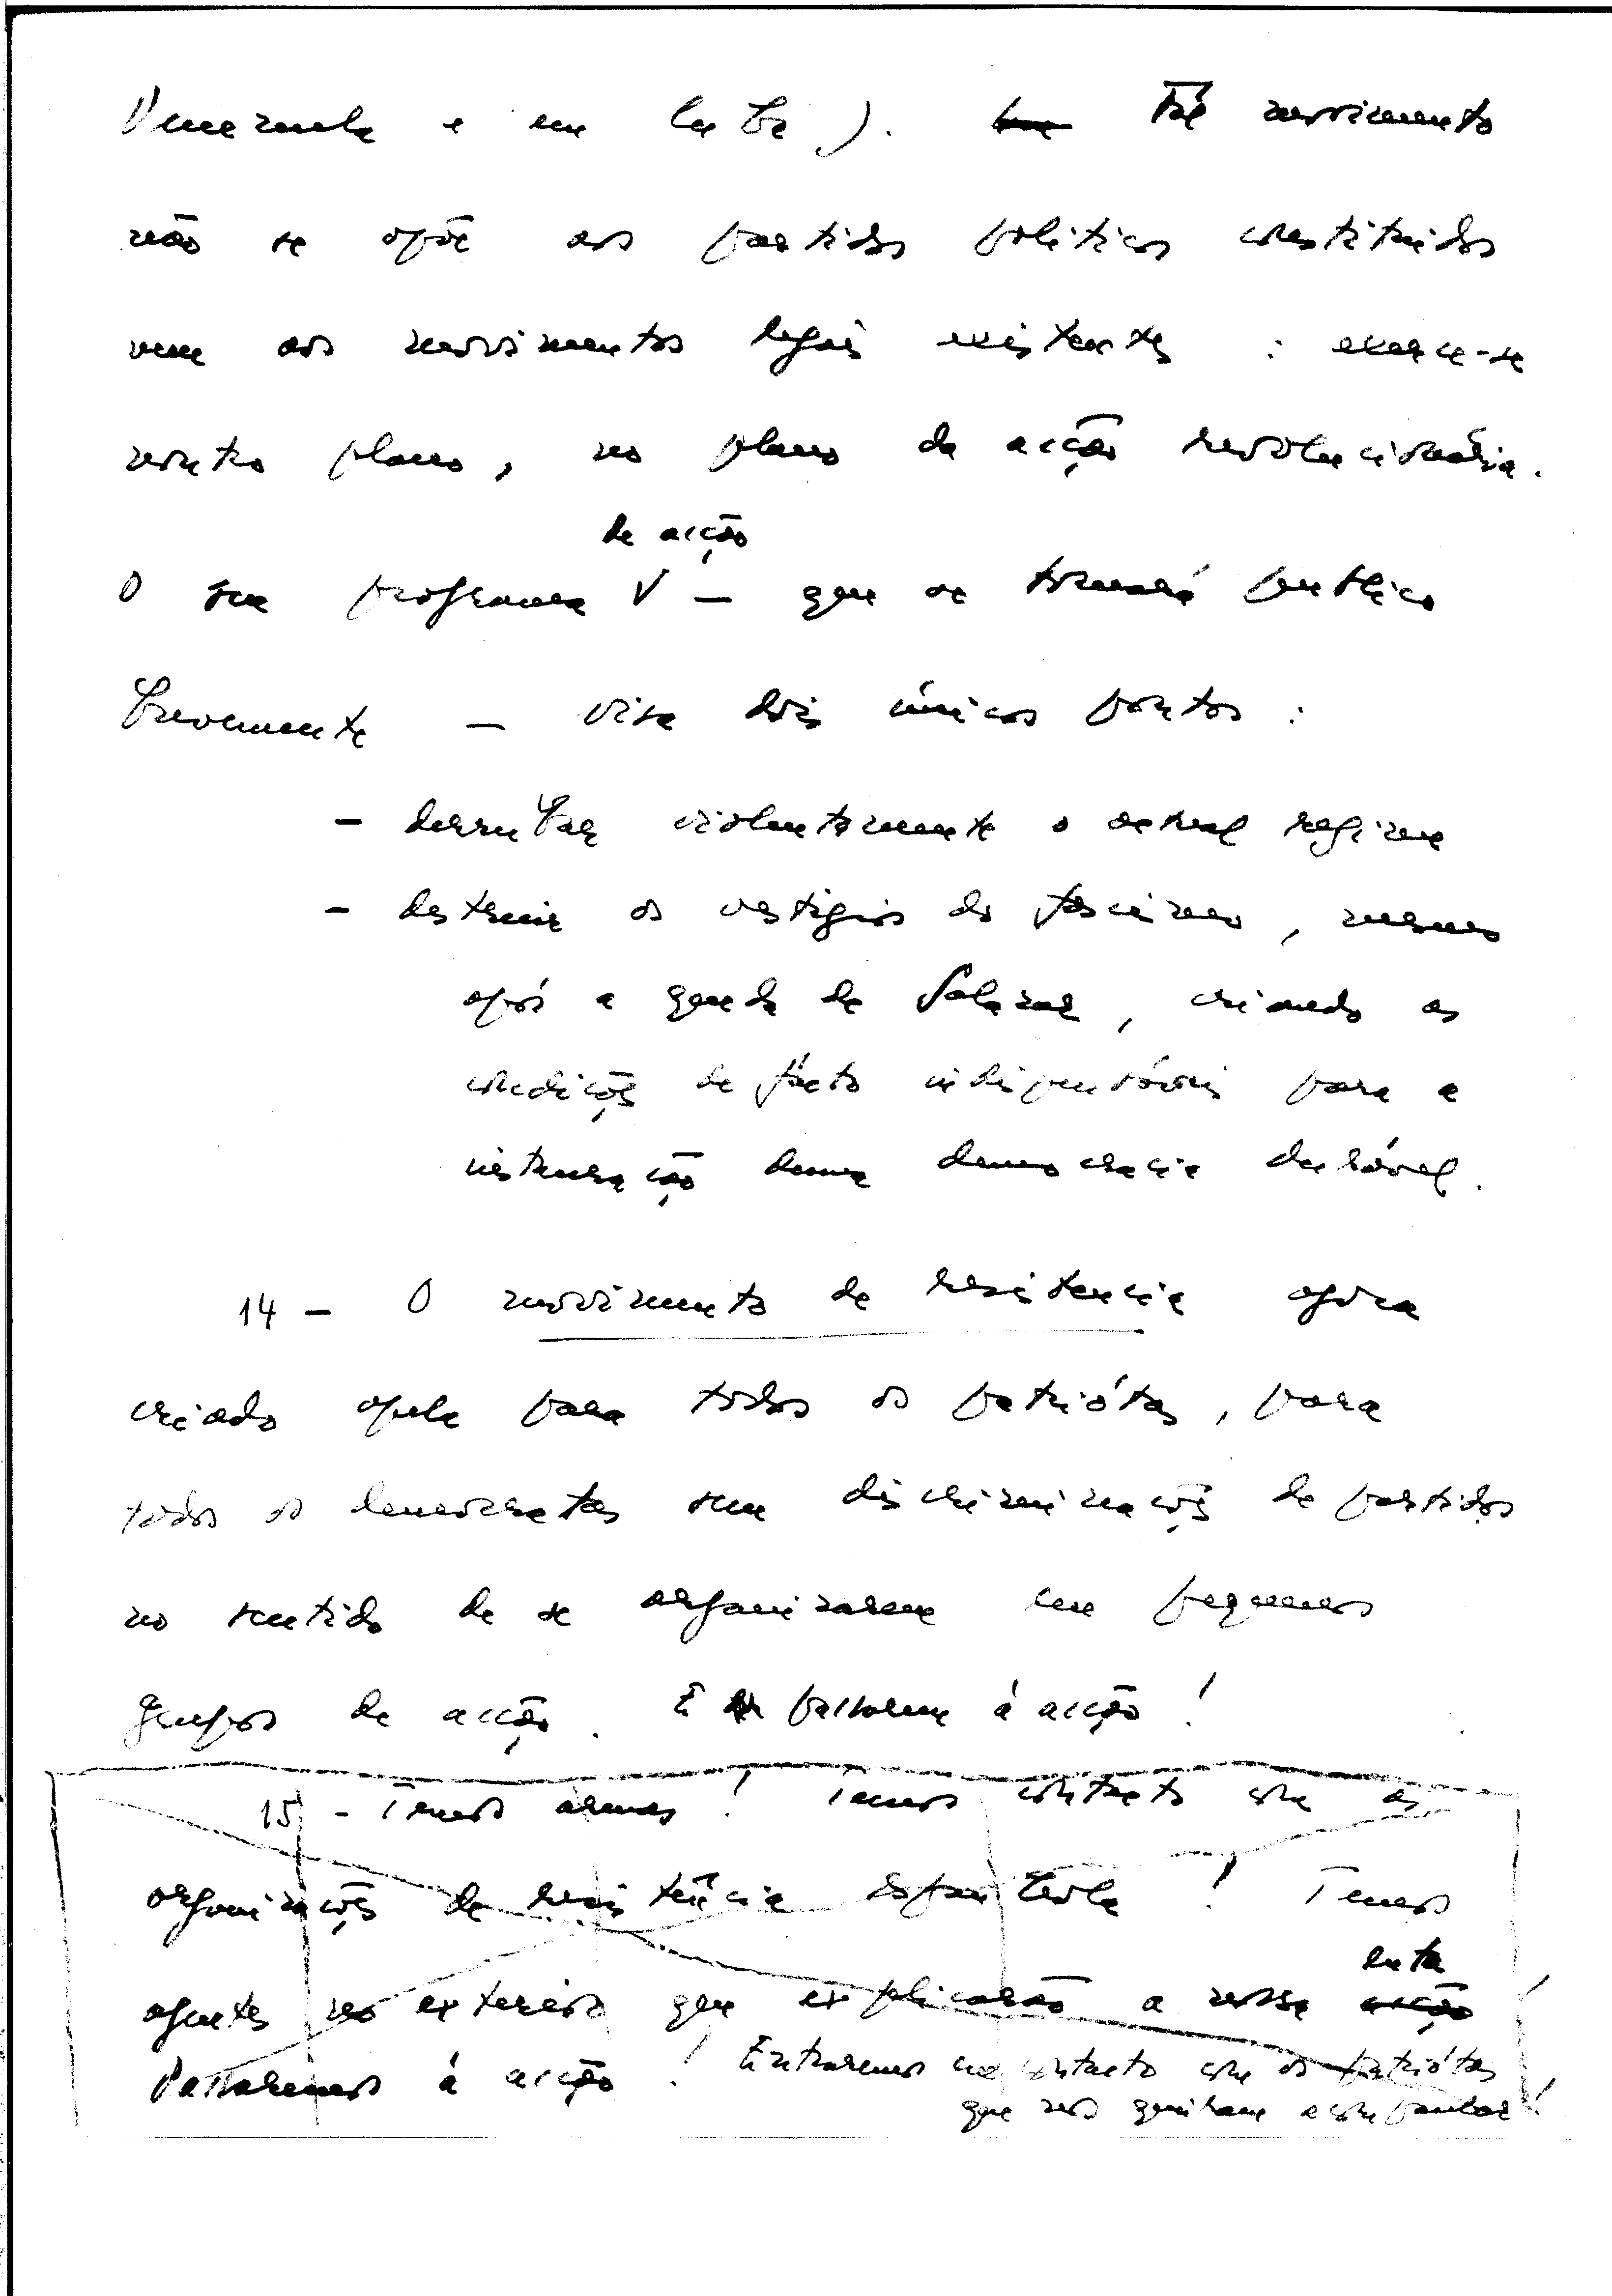 Venezuela e em Cuba). Tal movimento
não se opõe aos partidos politicos constituidos
nem aos movimentos legais existentes : exerce-se
noutro plano, no plano da acção revolucionária.
de acção
O seu programa V — que se tornará publico
brevemente — visa dois únicos pontos :
— derrubar violentamente o actual regime
— destruir os vestigios do fascismo, mesmo
após a queda de Salazar, criando as
condições de facto indispensáveis para a
instauração duma democracia durável.
14 — O movimento de resistencia agora
criado apela para todos os patriótas, para
todos os democratas sem discriminações de partidos
no sentido de se organizarem em pequenos
grupos de acção. E passarem á acção !
15 - Temos armas ! Temos contacto com as
organizações de resistência espanhola ! Temos
luta
agentes no exterior que explicarão a nossa acção
Passaremos á acção ! Entraremos em contacto com os patriótas
que nos queiram acompanhar !